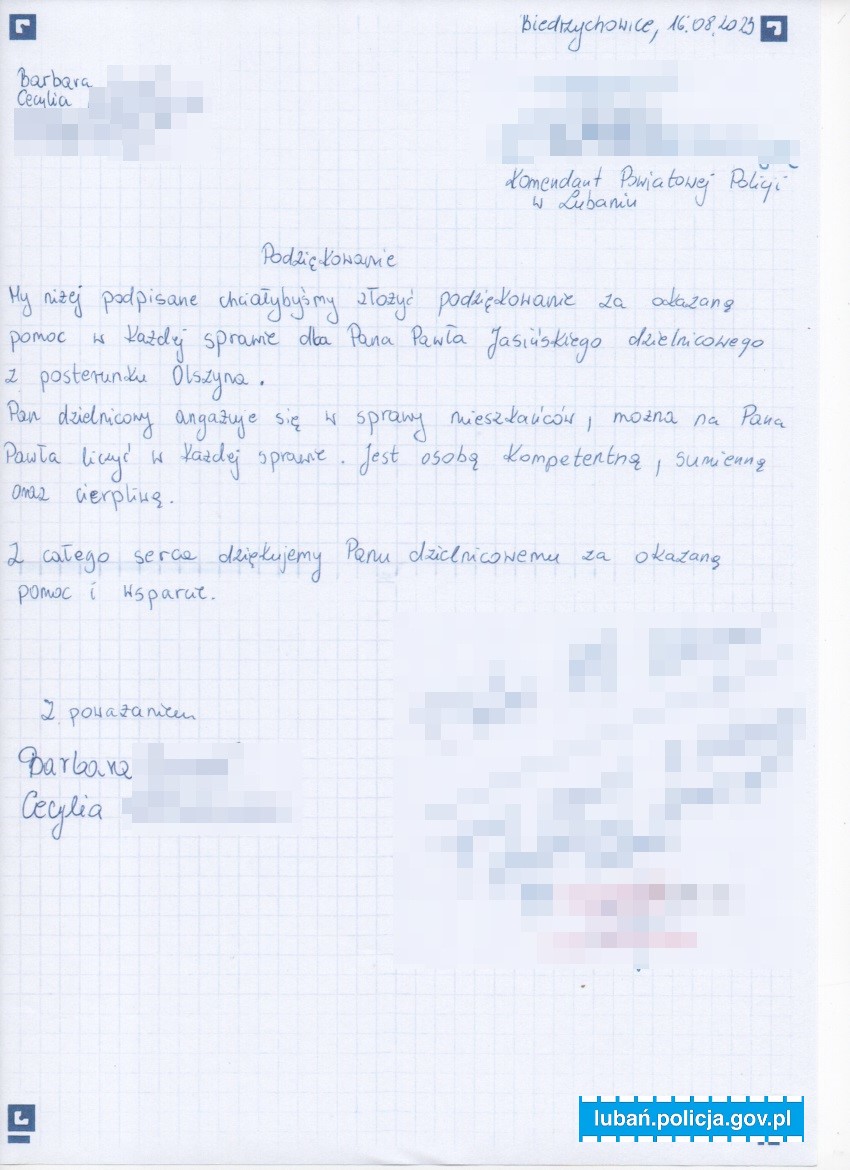 Biedrzychowice, 16.08.2023
Barbara
Cecylia
Komendant Powiatowej Policji
w Lubaniu
Podziękowanie
My niżej podpisane chciałybyśmy złożyć podziękowanie za okazaną
pomoc w każdej sprawie dla Pana Pawła Jasińskiego dzielnicowego
z posterunku Olszyna.
Pan dzielnicowy angażuje się w sprawy mieszkańców, można na Pana
Pawła liczyć w każdej sprawie. Jest osobą kompetentną, sumienną
oraz cierpliwą.
Z całego serca dziękujemy Panu dzielnicowemu za okazaną
pomoc i wsparcie.
Z poważaniem
Barbara
Cecylia
lubań.policja.gov.pl